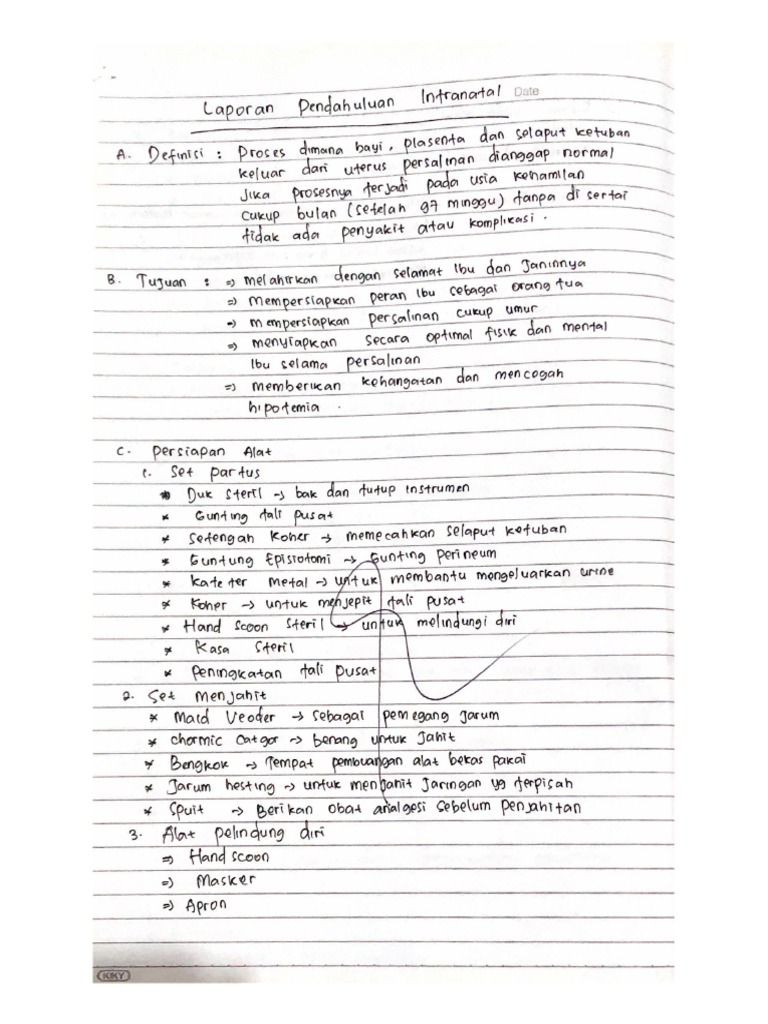 Laporan Pendahuluan Intranatal Date
A. Definisi : Proses dimana bayi, plasenta dan selaput ketuban
keluar dari uterus persalinan dianggap normal
jika prosesnya terjadi pada usia kehamilan
cukup bulan (setelah 37 minggu) tanpa di sertai
tidak ada penyakit atau komplikasi.
B. Tujuan : => melahirkan dengan selamat Ibu dan Janinnya
=> mempersiapkan peran Ibu sebagai orang tua
=> mempersiapkan persalinan cukup umur
=> menyiapkan secara optimal fisik dan mental
Ibu selama persalinan
=> memberikan kehangatan dan mencogah
hipotemia .
C. Persiapan Alat
1. Set partus
* Duk Steril -> bak dan tutup instrumen
* Gunting tali pusat
* Setengah Koher -> memecahkan selaput ketuban
* Guntung Episiotomi -> Gunting perineum
* Kateter metal -> untuk membantu mengeluarkan urine
* Koher -> untuk menjepit tali pusat
* Hand scoon Steril -> untuk melindungi diri
* Kasa Steril
* Peningkatan tali pusat
2. Set menjahit
* Maid Veoder -> sebagai pemegang jarum
* chormic Catgor -> benang untuk Jahit
* Bengkok -> Tempat pembuangan alat bekas pakai
* Jarum hesting -> untuk menjahit Jaringan yg terpisah
* Spuit -> Berikan obat analgesi sebelum penjahitan
3. Alat pelindung diri
=> Hand scoon
=> Masker
=> Apron
KIKY